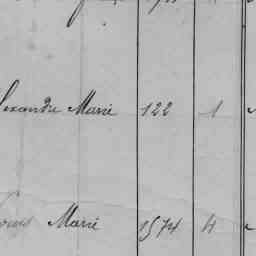 lexandre Marie 122 1
Louis Marie 1574 4